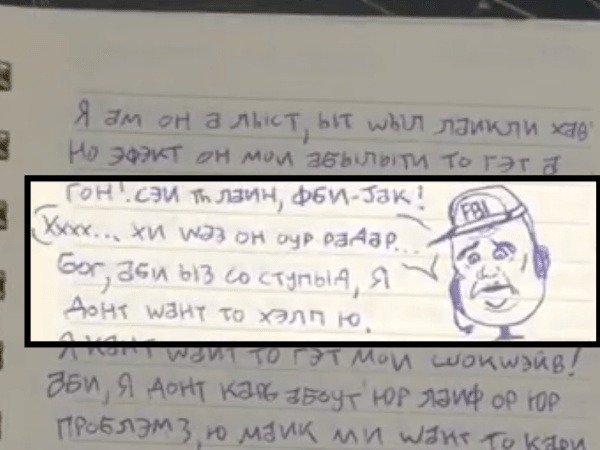 Я ам он а лыст, ыт шыл лаикли хав
Но эфэкт он мои абылыти то гэт а
гон! Сэи тһ лаин, фби-јак!
FBI
Хххх... хи шаз он оур радар...
Бог, аби ыз со ступыд, Я
донт шант то хэлп ю.
Я кант шаит то гэт мои шокшэйв!
аби, Я донт каrь абоут юр лаиф ор юр
проблэмз, ю маик ми шант то кари